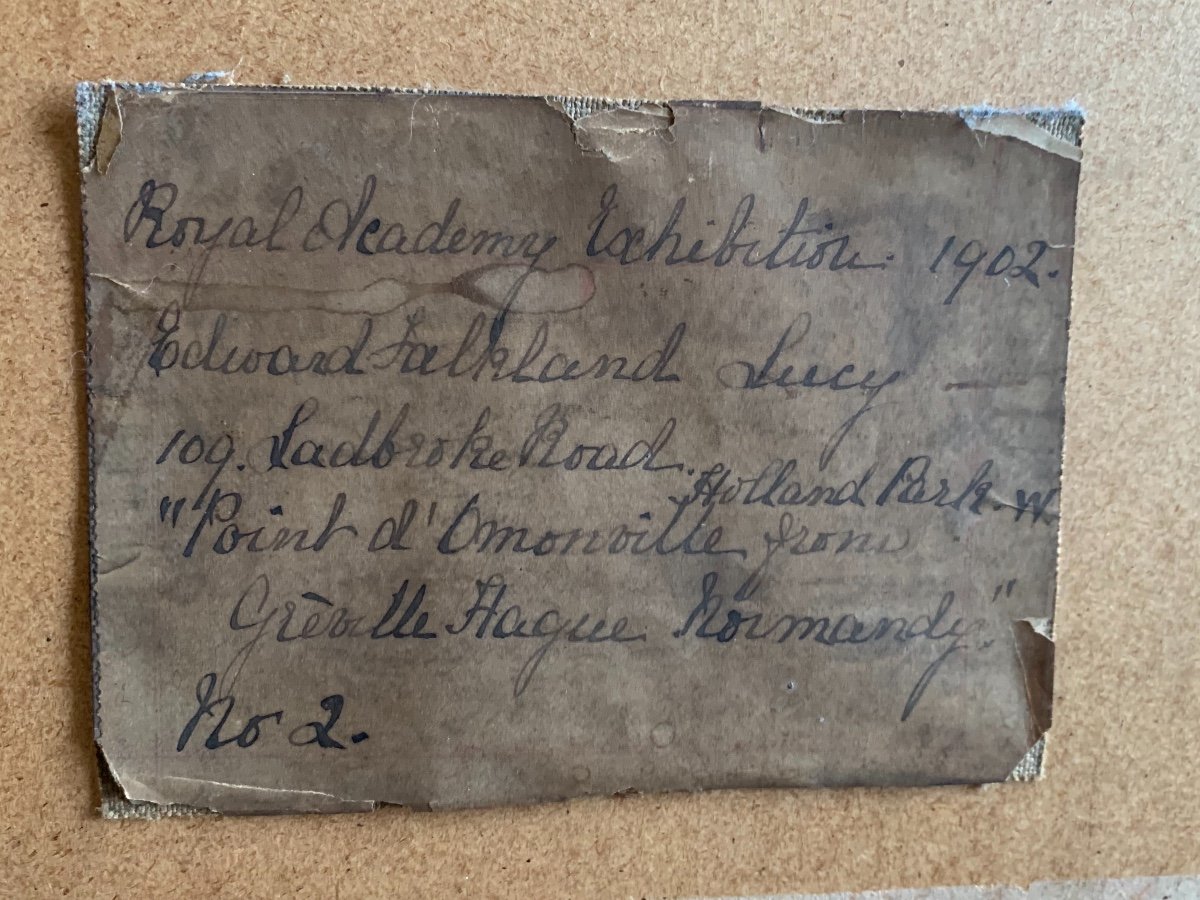 Royal Academy Exhibition. 1902.
Edward Falkland Lucy —
109. Ladbroke Road.
Holland Park. W.
"Point d'Omonville from
Grèville Hague Normandy."
No 2.